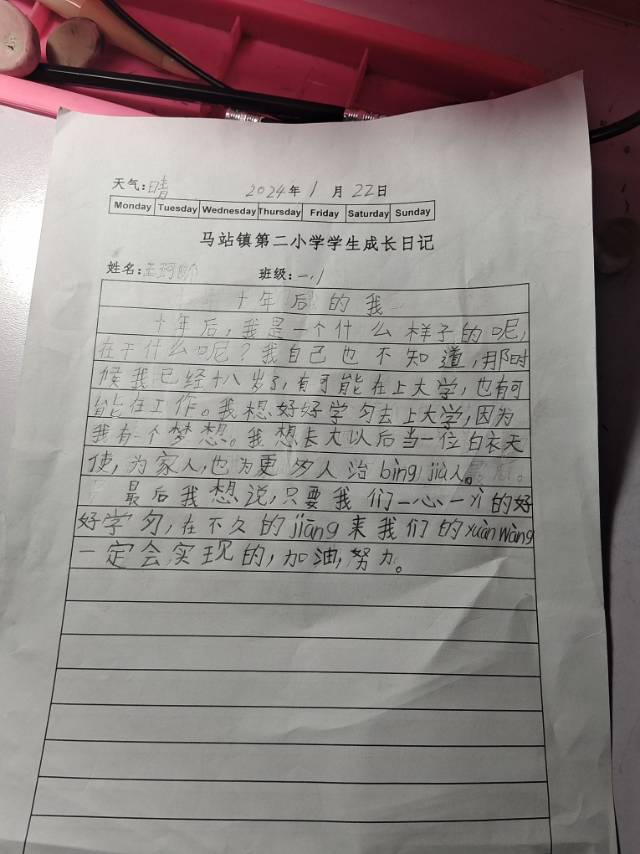 天气:晴 2024年1月22日
Monday Tuesday Wednesday Thursday Friday Saturday Sunday
马站镇第二小学学生成长日记
姓名: 班级:一.1
十年后的我
十年后,我是一个什么样子的呢,
在干什么呢?我自己也不知道,那时
候我已经十八岁了,有可能在上大学,也有可
能在工作。我想好好学习去上大学,因为
我有一个梦想。我想长大以后当一位白衣天
使,为家人,也为更多人治bìng jiù人。
最后我想说,只要我们一心一意的好
好学习,在不久的jiāng来我们的yuàn wàng
一定会实现的,加油,努力。